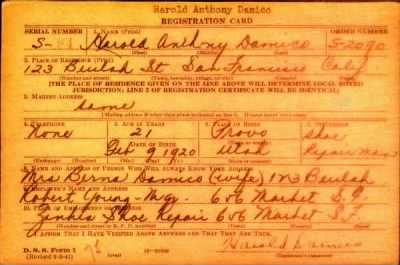 Harold Anthony Damico
REGISTRATION CARD
SERIAL NUMBER 1. NAME (Print) ORDER NUMBER
S- Harold Anthony Damico S-2090
(First) (Middle) (Last)
2. PLACE OF RESIDENCE (Print)
123 Beulah St San Francisco Calif
(Number and street) (Town, township, village, or city) (County) (State)
[THE PLACE OF RESIDENCE GIVEN ON THE LINE ABOVE WILL DETERMINE LOCAL BOARD
JURISDICTION; LINE 2 OF REGISTRATION CERTIFICATE WILL BE IDENTICAL]
3. MAILING ADDRESS
same
[Mailing address if other than place indicated on line 2. If same insert word same]
4. TELEPHONE 5. AGE IN YEARS 6. PLACE OF BIRTH 7. OCCUPATION
None 21 Provo Shoe
DATE OF BIRTH
Feb 9 1920 Utah Repair man
(Exchange) (Number) (Mo.) (Day) (Yr.) (State or country)
8. NAME AND ADDRESS OF PERSON WHO WILL ALWAYS KNOW YOUR ADDRESS
Mrs Damico (wife) 123 Beulah
9. EMPLOYER'S NAME AND ADDRESS
Robert Young-Mgr. 656 Market S.F.
10. PLACE OF EMPLOYMENT OR BUSINESS
Shoe Repair 656 Market S.F.
(Number and street or R. F. D. number) (Town) (County) (State)
I AFFIRM THAT I HAVE VERIFIED ABOVE ANSWERS AND THAT THEY ARE TRUE.
D. S. S. Form 1
(over) Harold Damico